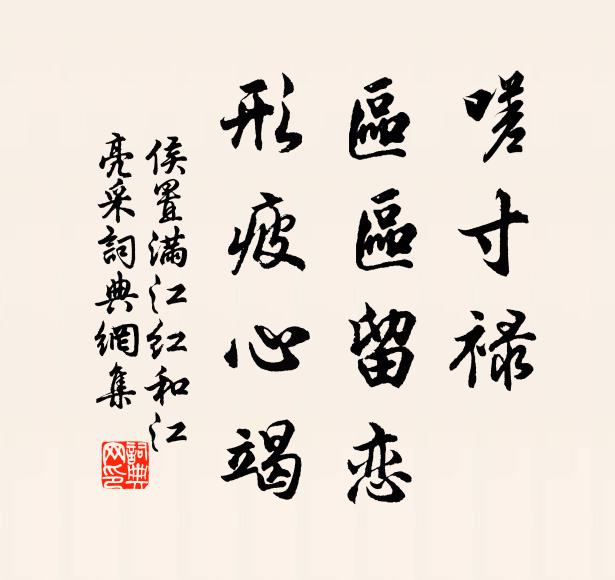 嗟寸禄
區區留恋
形疲心竭
侯置滿江红和江
亮采詞典網集
詞典网印